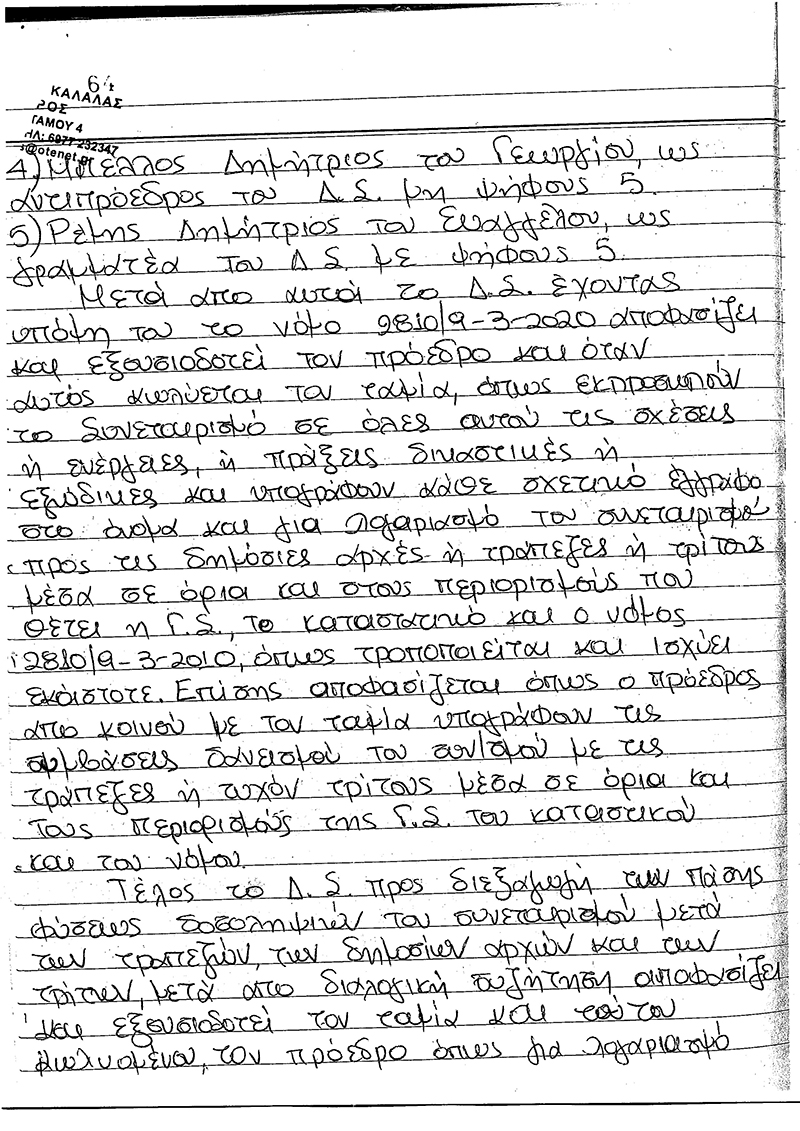 64
ΚΑΛΑΛΑΣ
ΡΟΣ
ΓΑΜΟΥ 4
ΗΛ: 6977 232347
s@otenet.gr
4) Μπέλλος Δημήτριος του Γεωργίου, ως
αντιπρόεδρος του Δ.Σ. μη ψήφους 5.
5) Ρέμης Δημήτριος του Ευαγγέλου, ως
γραμματέα του Δ.Σ. με ψήφους 5.
Μετά απο αυτά το Δ.Σ. έχοντας
υπόψη του το νόμο 2810/9-3-2020 αποφασίζει
και εξουσιοδοτεί τον πρόεδρο και όταν
αυτός κωλύεται τον ταμία, όπως εκπροσωπούν
το Συνεταιρισμό σε όλες αυτού τις σχέσεις
ή ενέργειες, ή πράξεις δικαστικές ή
εξώδικες και υπογράφουν κάθε σχετικό έγγραφο
στο όνομα και για λογαριασμό του συνεταιρισμού
προς τις δημόσιες αρχές ή τράπεζες ή τρίτους
μέσα σε όρια και στους περιορισμούς που
θέτει η Γ.Σ., το καταστατικό και ο νόμος
2810/9-3-2010, όπως τροποποιείται και ισχύει
εκάστοτε. Επίσης αποφασίζεται όπως ο πρόεδρος
απο κοινού με τον ταμία υπογράφουν τις
συμβάσεις δανεισμού του συν/σμού με τις
τράπεζες ή τυχόν τρίτους μέσα σε όρια και
τους περιορισμούς της Γ.Σ. του καταστικού
και του νόμου.
Τέλος το Δ.Σ. προς διεξαγωγή των πάσης
φύσεως δοσοληψιών του συνεταιρισμού μετά
των τραπεζών, των δημοσίων αρχών και των
τρίτων, μετά απο διαλογική συζήτηση αποφασίζει
και εξουσιοδοτεί τον ταμία και τούτου
κωλυομένου, τον πρόεδρο όπως για λογαριασμό